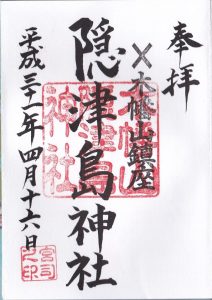 奉拝
木幡山鎮座
隠津島神社
平成三十一年四月十六日
木幡山
隠津島
神社
宮司
之印